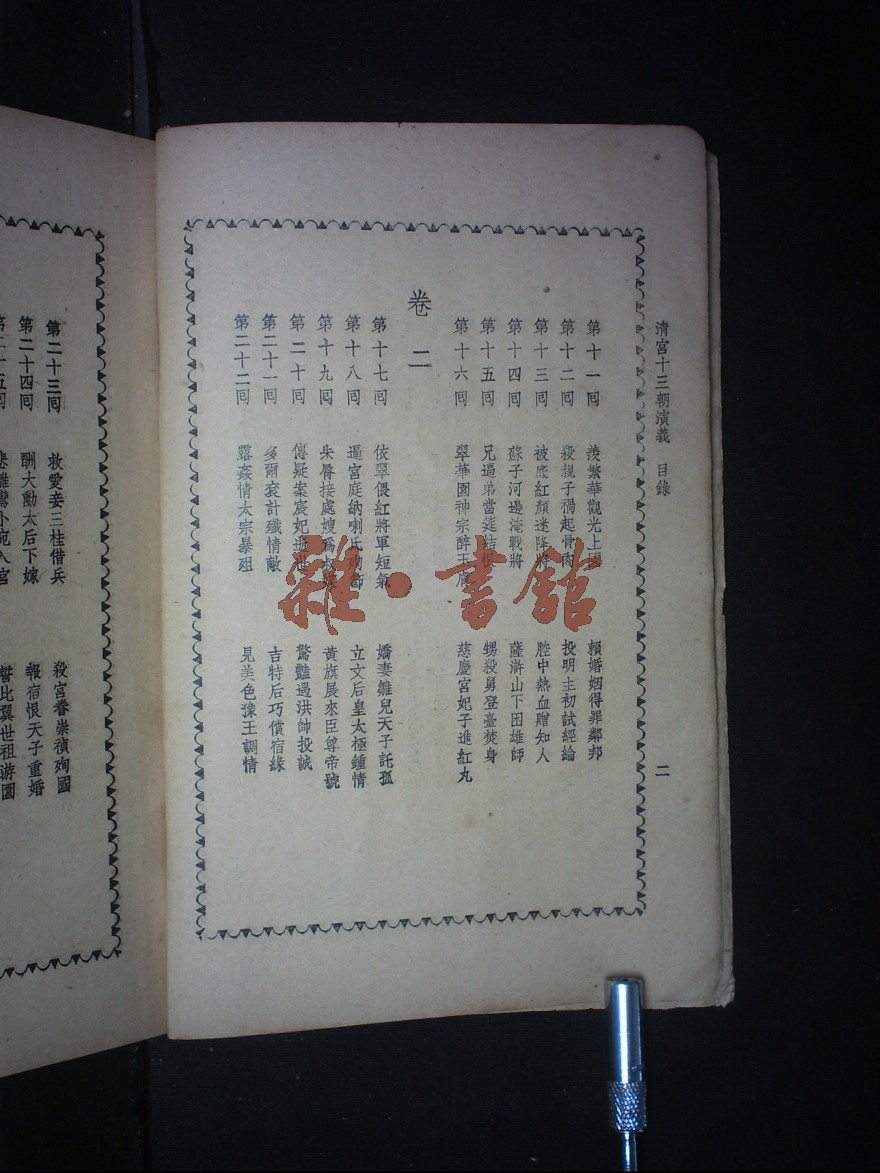 清宮十三朝演義 目錄
二
第十一回 羨繁華觀光上國 賴婚姻得罪鄰邦
第十二回 殺親子禍起骨肉 投明主初試經綸
第十三回 被底紅顏迷降將 腔中熱血贈知人
第十四回 蘇子河邊淹戰將 薩滸山下困雄師
第十五回 兄逼弟當筵結恨 甥殺舅登臺焚身
第十六回 翠華園神宗醉玉 慈慶宮妃子進紅丸
卷二
第十七回 依翠偎紅將軍短氣 嬌妻雛兒天子託孤
第十八回 逼宮庭納喇氏殉節 立文后皇太極鍾情
第十九回 朱脣接處嫂爲叔 黃旗展來臣尊帝號
第二十回 傳疑案宸妃逝世 驚豔遇洪帥投誠
第二十一回 多爾袞計殲情敵 吉特后巧償宿緣
第二十二回 露姦情太宗暴殂 見美色豫王調情
第二十三回 救愛妾三桂借兵 殺宮眷崇禎殉國
第二十四回 酬大勳太后下嫁 報宿恨天子重婚
小宛入宮 誓比翼世祖游園
雜·書館